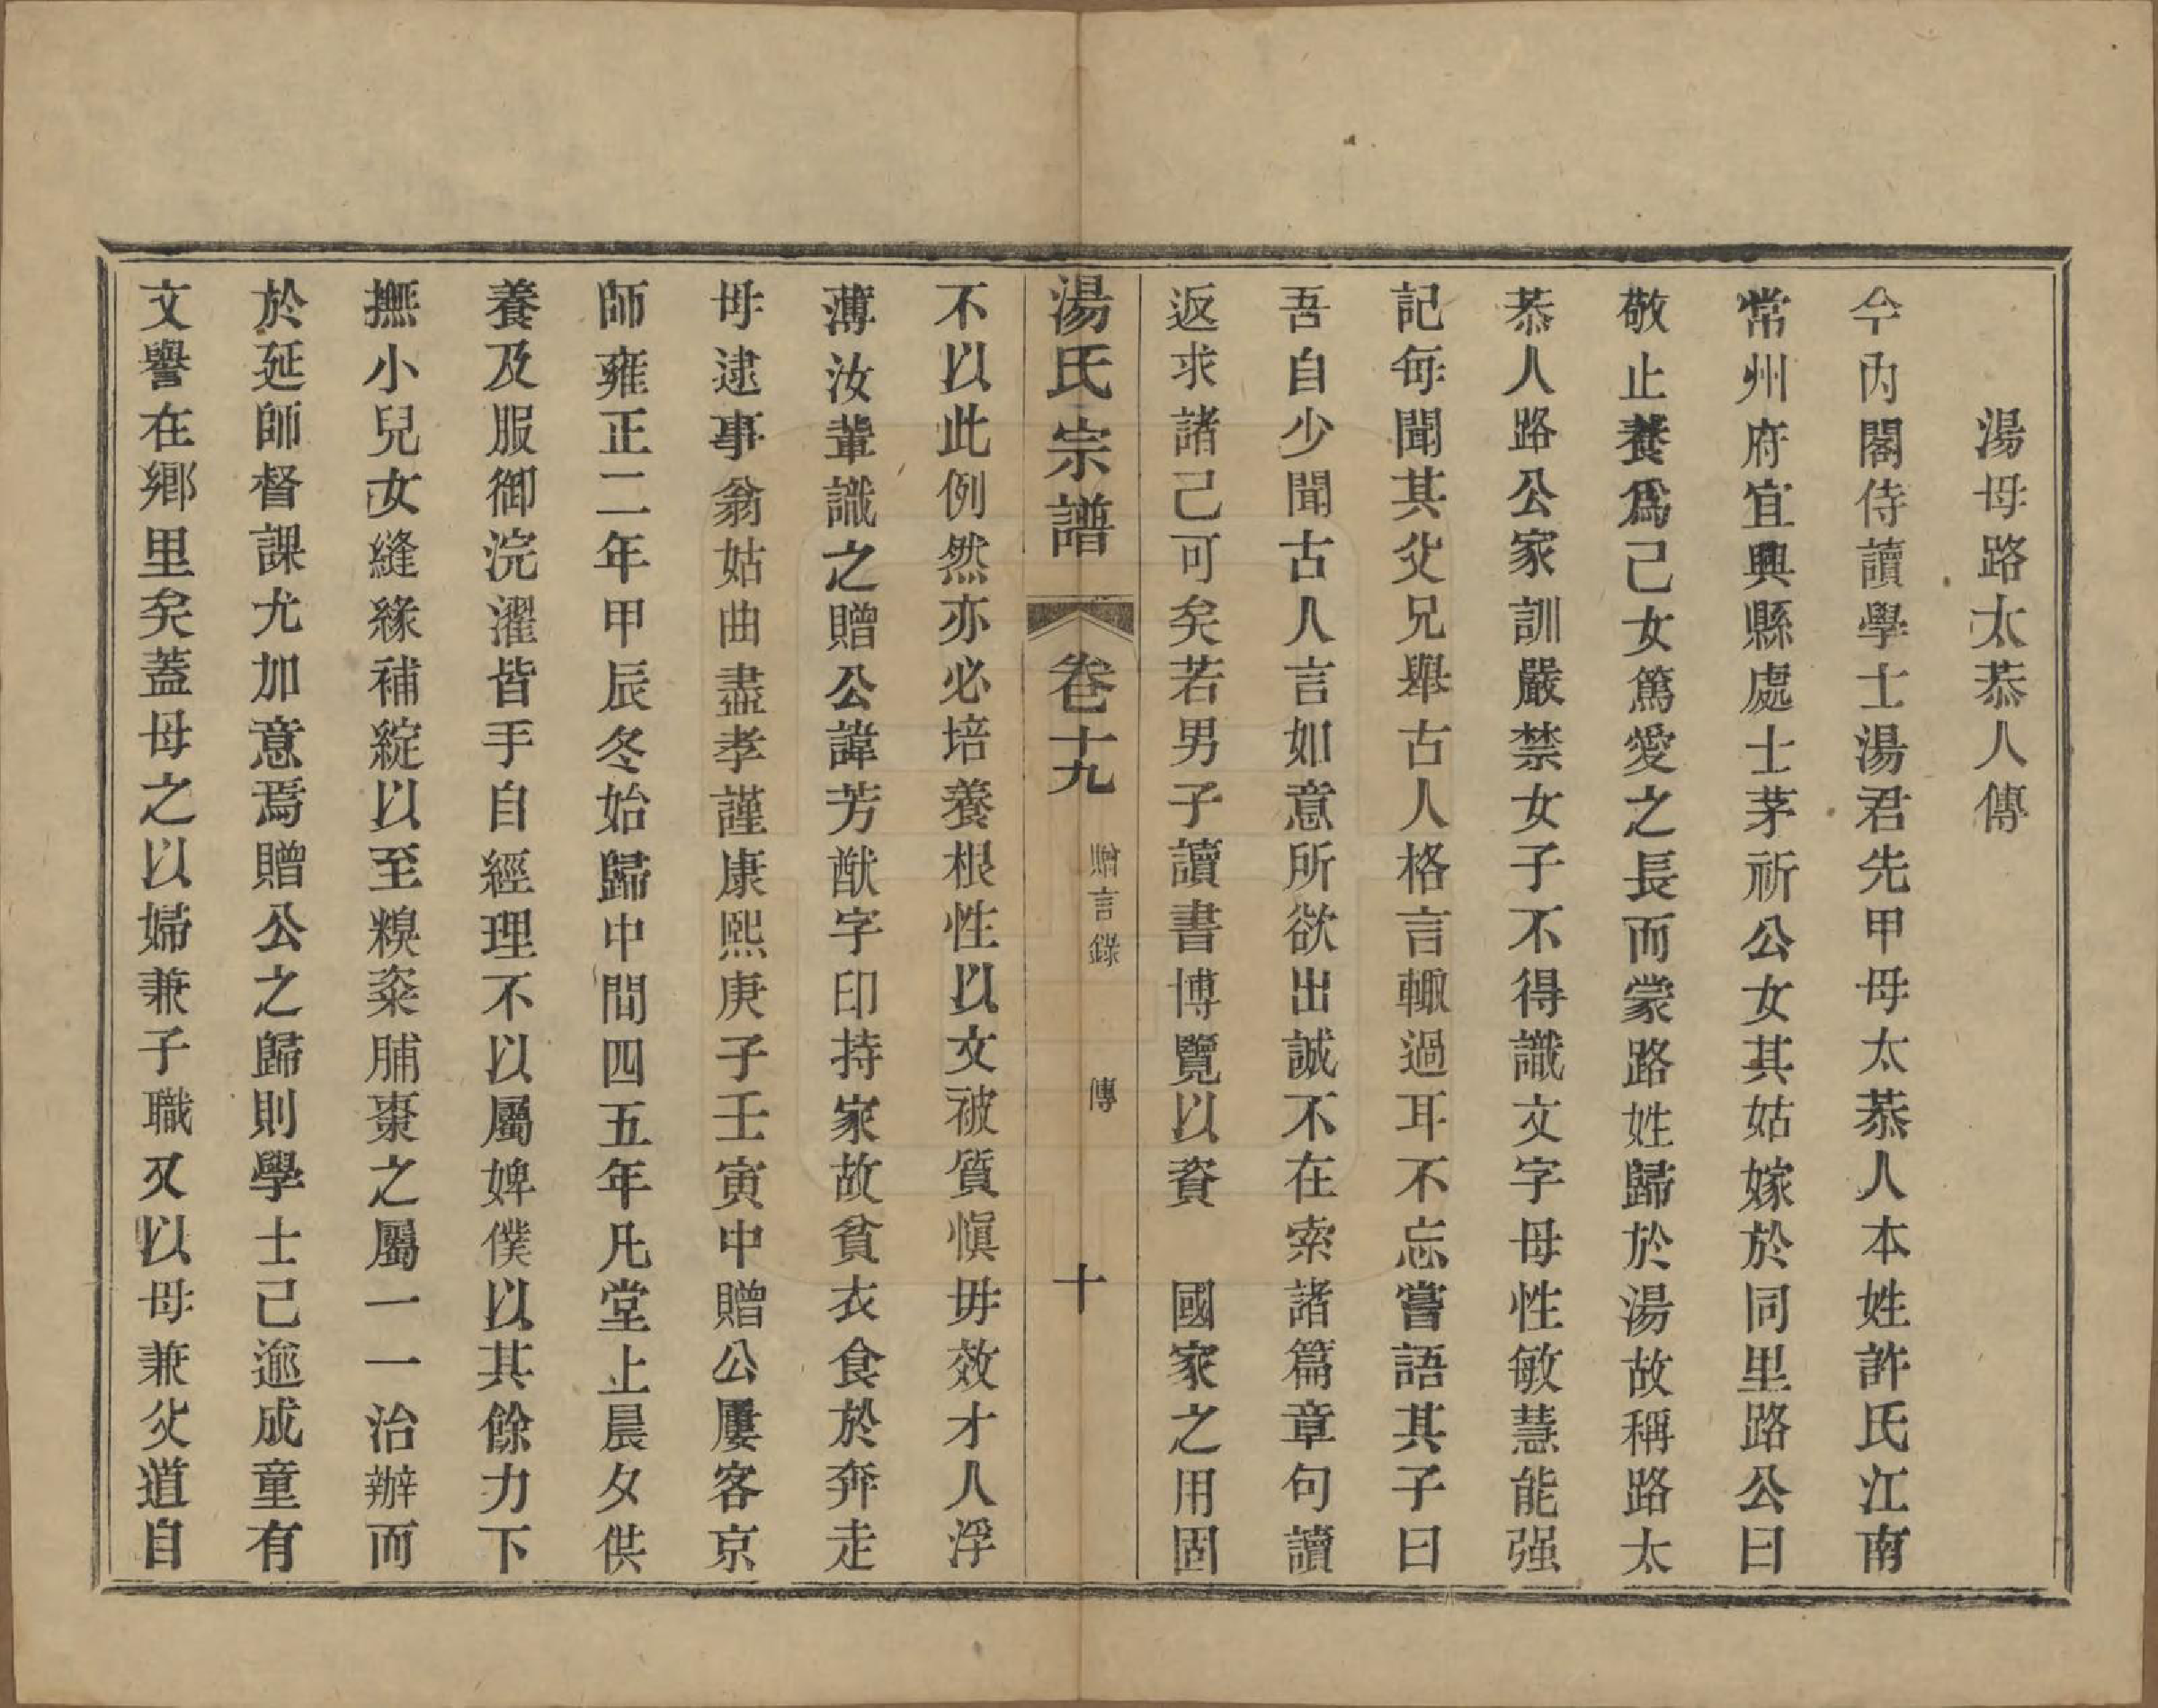 湯母路太恭人傳
今內閣侍讀學士湯君先甲母太恭人本姓許氏江南
常州府宜興縣處士茅祈公女其姑嫁於同里路公曰
敬止養爲己女篤愛之長而蒙路姓歸於湯故稱路太
恭人路公家訓嚴禁女子不得識文字母性敏慧能强
記每聞其父兄舉古人格言輙過耳不忘嘗語其子曰
吾自少聞古人言如意所欲出誠不在索諸篇章句讀
返求諸己可矣若男子讀書博覽以資　國家之用固
湯氏宗譜　卷十九　贈言錄　傳　十
不以此例然亦必培養根性以文被質愼毋效才人浮
薄汝輩識之贈公諱芳猷字印持家故貧衣食於奔走
母逮事翁姑曲盡孝謹康熙庚子壬寅中贈公屢客京
師雍正二年甲辰冬始歸中間四五年凡堂上晨夕供
養及服御浣濯皆手自經理不以屬婢僕以其餘力下
撫小兒女縫緣補綻以至糗粢脯棗之屬一一治辦而
於延師督課尤加意焉贈公之歸則學士已逾成童有
文譽在鄉里矣蓋母之以婦兼子職又以母兼父道自